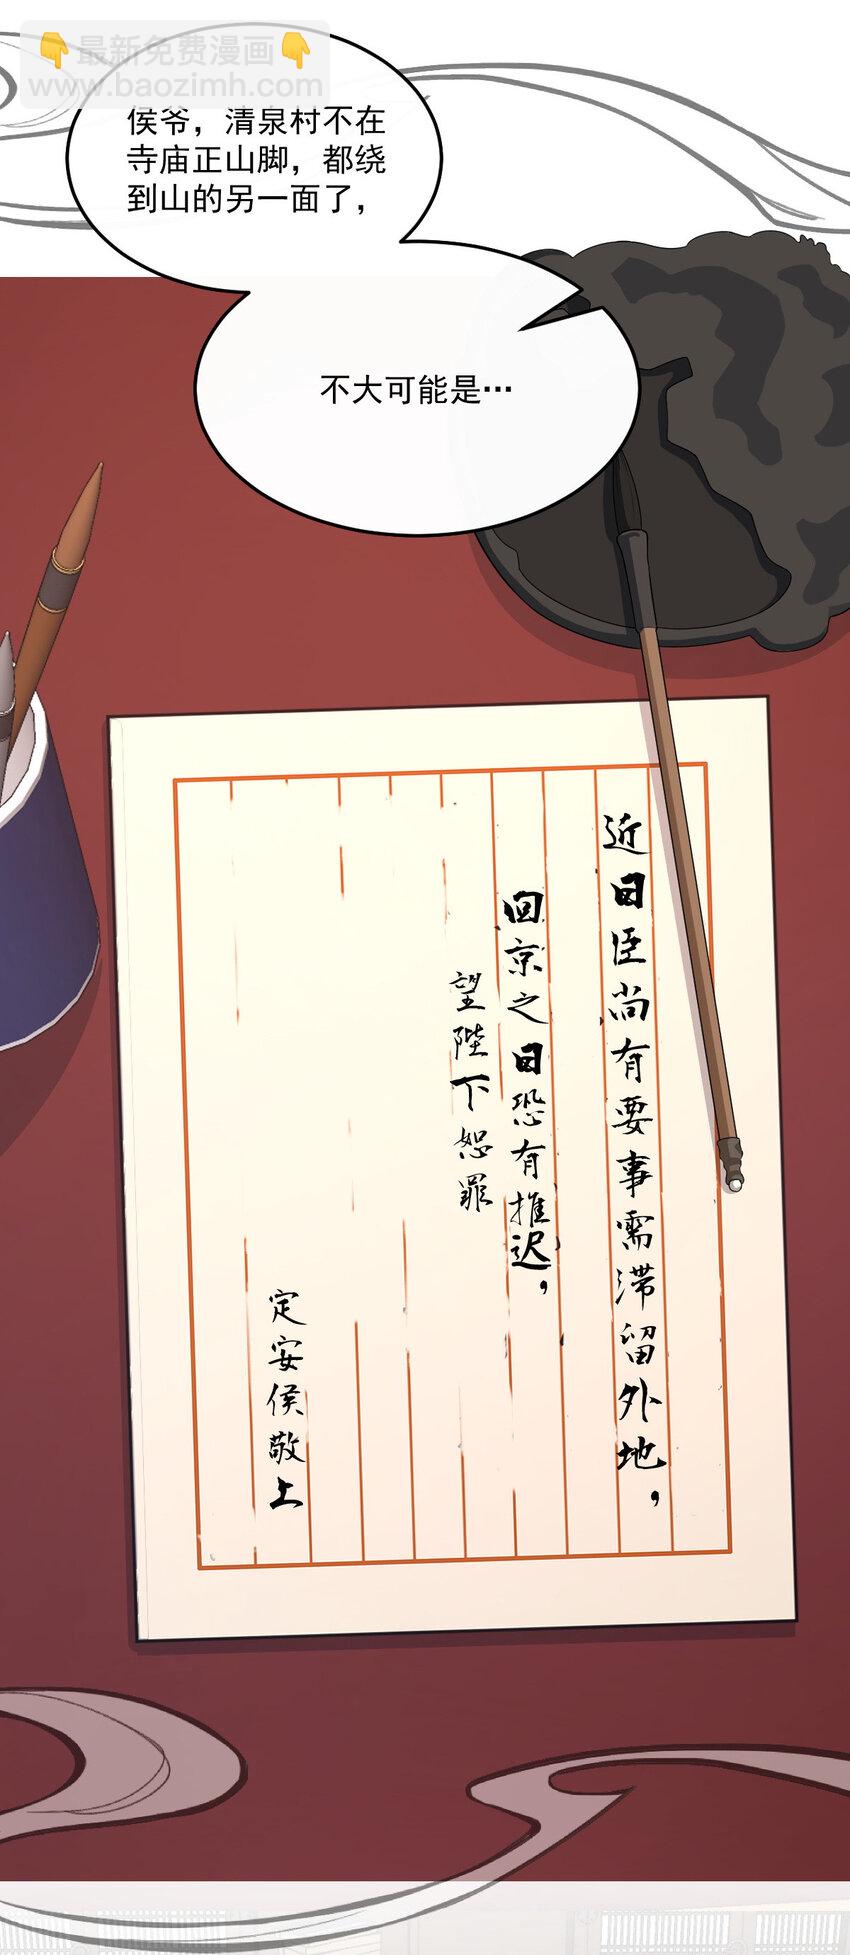 👇最新免费漫画👇
www.baozimh.com
侯爷，清泉村不在
寺庙正山脚，都绕
到山的另一面了，
不大可能是…
近日臣尚有要事需滞留外地，
回京之日恐有推迟，
望陛下恕罪
定安侯敬上